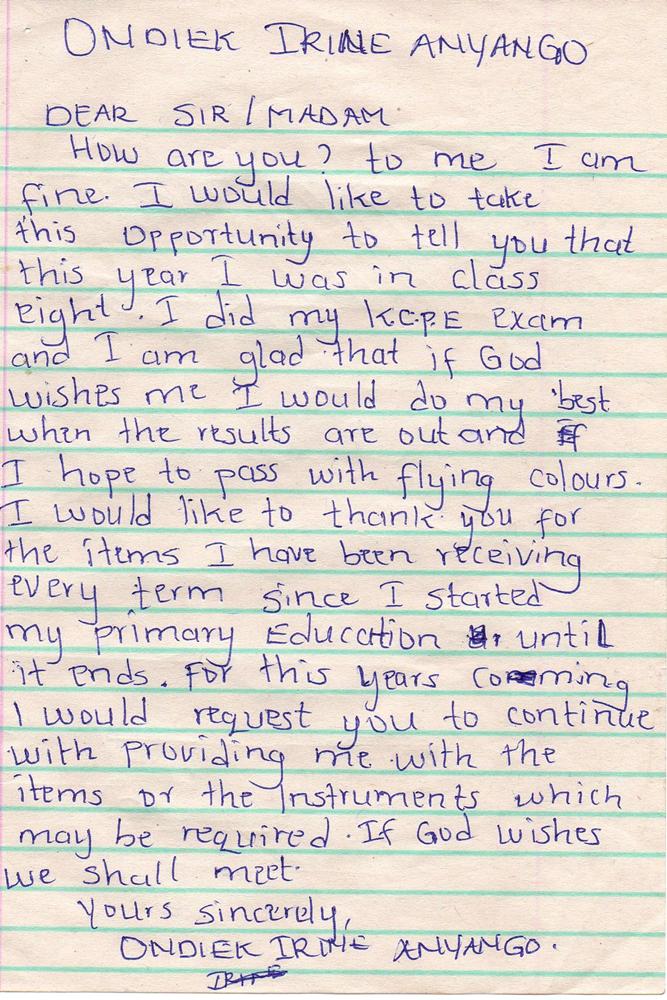 ONDIEK IRINE ANYANGO
DEAR SIR / MADAM
How are you? to me I am
fine. I would like to take
this opportunity to tell you that
this year I was in class
eight. I did my K.C.P.E exam
and I am glad that if God
wishes me I would do my best
when the results are out and
I hope to pass with flying colours.
I would like to thank you for
the items I have been receiving
every term since I started
my primary Education until
it ends. For this years comming
I would request you to continue
with providing me with the
items or the instruments which
may be required. If God wishes
we shall meet.
Yours sincerely,
ONDIEK IRINE ANYANGO.